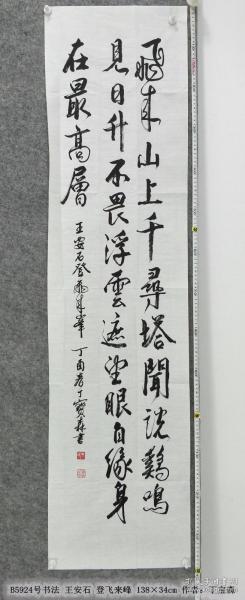 飛来山上千尋塔聞説鷄鳴
見日升不畏浮雲遮望眼自緣身
在最高層
王安石登飛来峯 丁酉春丁寶森書
B5924号书法 王安石 登飞来峰 138×34cm 作者：丁宝森